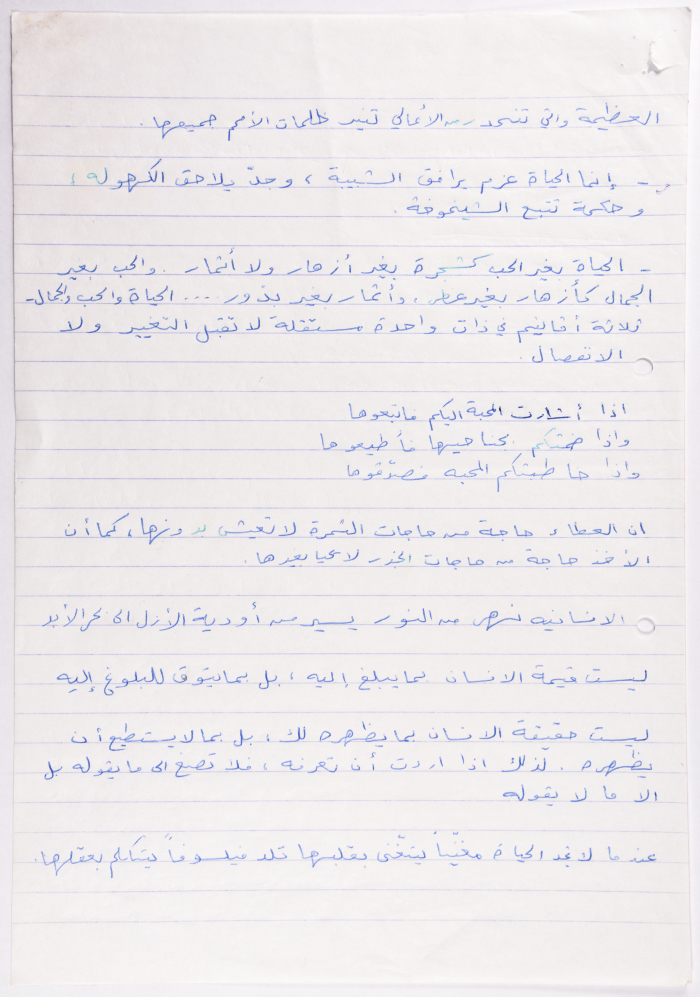 العظيمة والتي تنحدر من الأعالي تنير ظلمات الأمم جميعها.
- إنما الحياة عزم يرافق الشبيبة ، وجدّ يلاحق الكهوله ،
وحكمة تتبع الشيخوخة .
- الحياة بغير الحب كشجرة بغير أزهار ولا أثمار . والحب بغير
الجمال كأزهار بغير عطر ، وأثمار بغير بذور ... الحياة والحب والجمال -
ثلاثة أقانيم في ذات واحدة مستقلة لا تقبل التغيير ولا
الانفصال .
اذا أشارت المحبة اليكم فاتبعوها
واذا ضمتكم بجناحيها فأطيعوها
واذا خاطبتكم المحبه فصدّقوها
ان العطاء حاجة من حاجات الثمرة لا تعيش بدونها ، كما أن
الأخذ حاجة من حاجات الجذر لا يحيا بغيرها .
الانسانيه نهر من النور يسير من أودية الأزل الى بحر الأبد
ليست قيمة الانسان بما يبلغ إليه ، بل بما يتوق للبلوغ إليه
ليست حقيقة الانسان بما يظهره لك ، بل بما لا يستطيع أن
يظهره . لذلك اذا اردت أن تعرفه ، فلا تصغ الى ما يقوله بل
الا ما لا يقوله
عندما لا تجد الحياة مغنّياً يتغنّى بقلبها تلد فيلسوفاً يتكلم بعقلها .